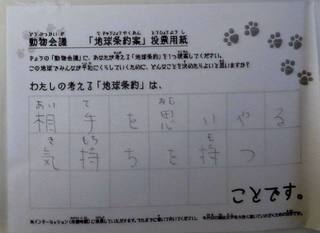 動物会議 「地球条約案」投票用紙
きょうの「動物会議」に、あなたが考える「地球条約」を1つ提案してください。
この地球でみんなが平和にくらしていくために、どんなことを決めたらよいと思いますか?
わたしの考える「地球条約」は、
相手を思いやる
気持ちを持つ
ことです。